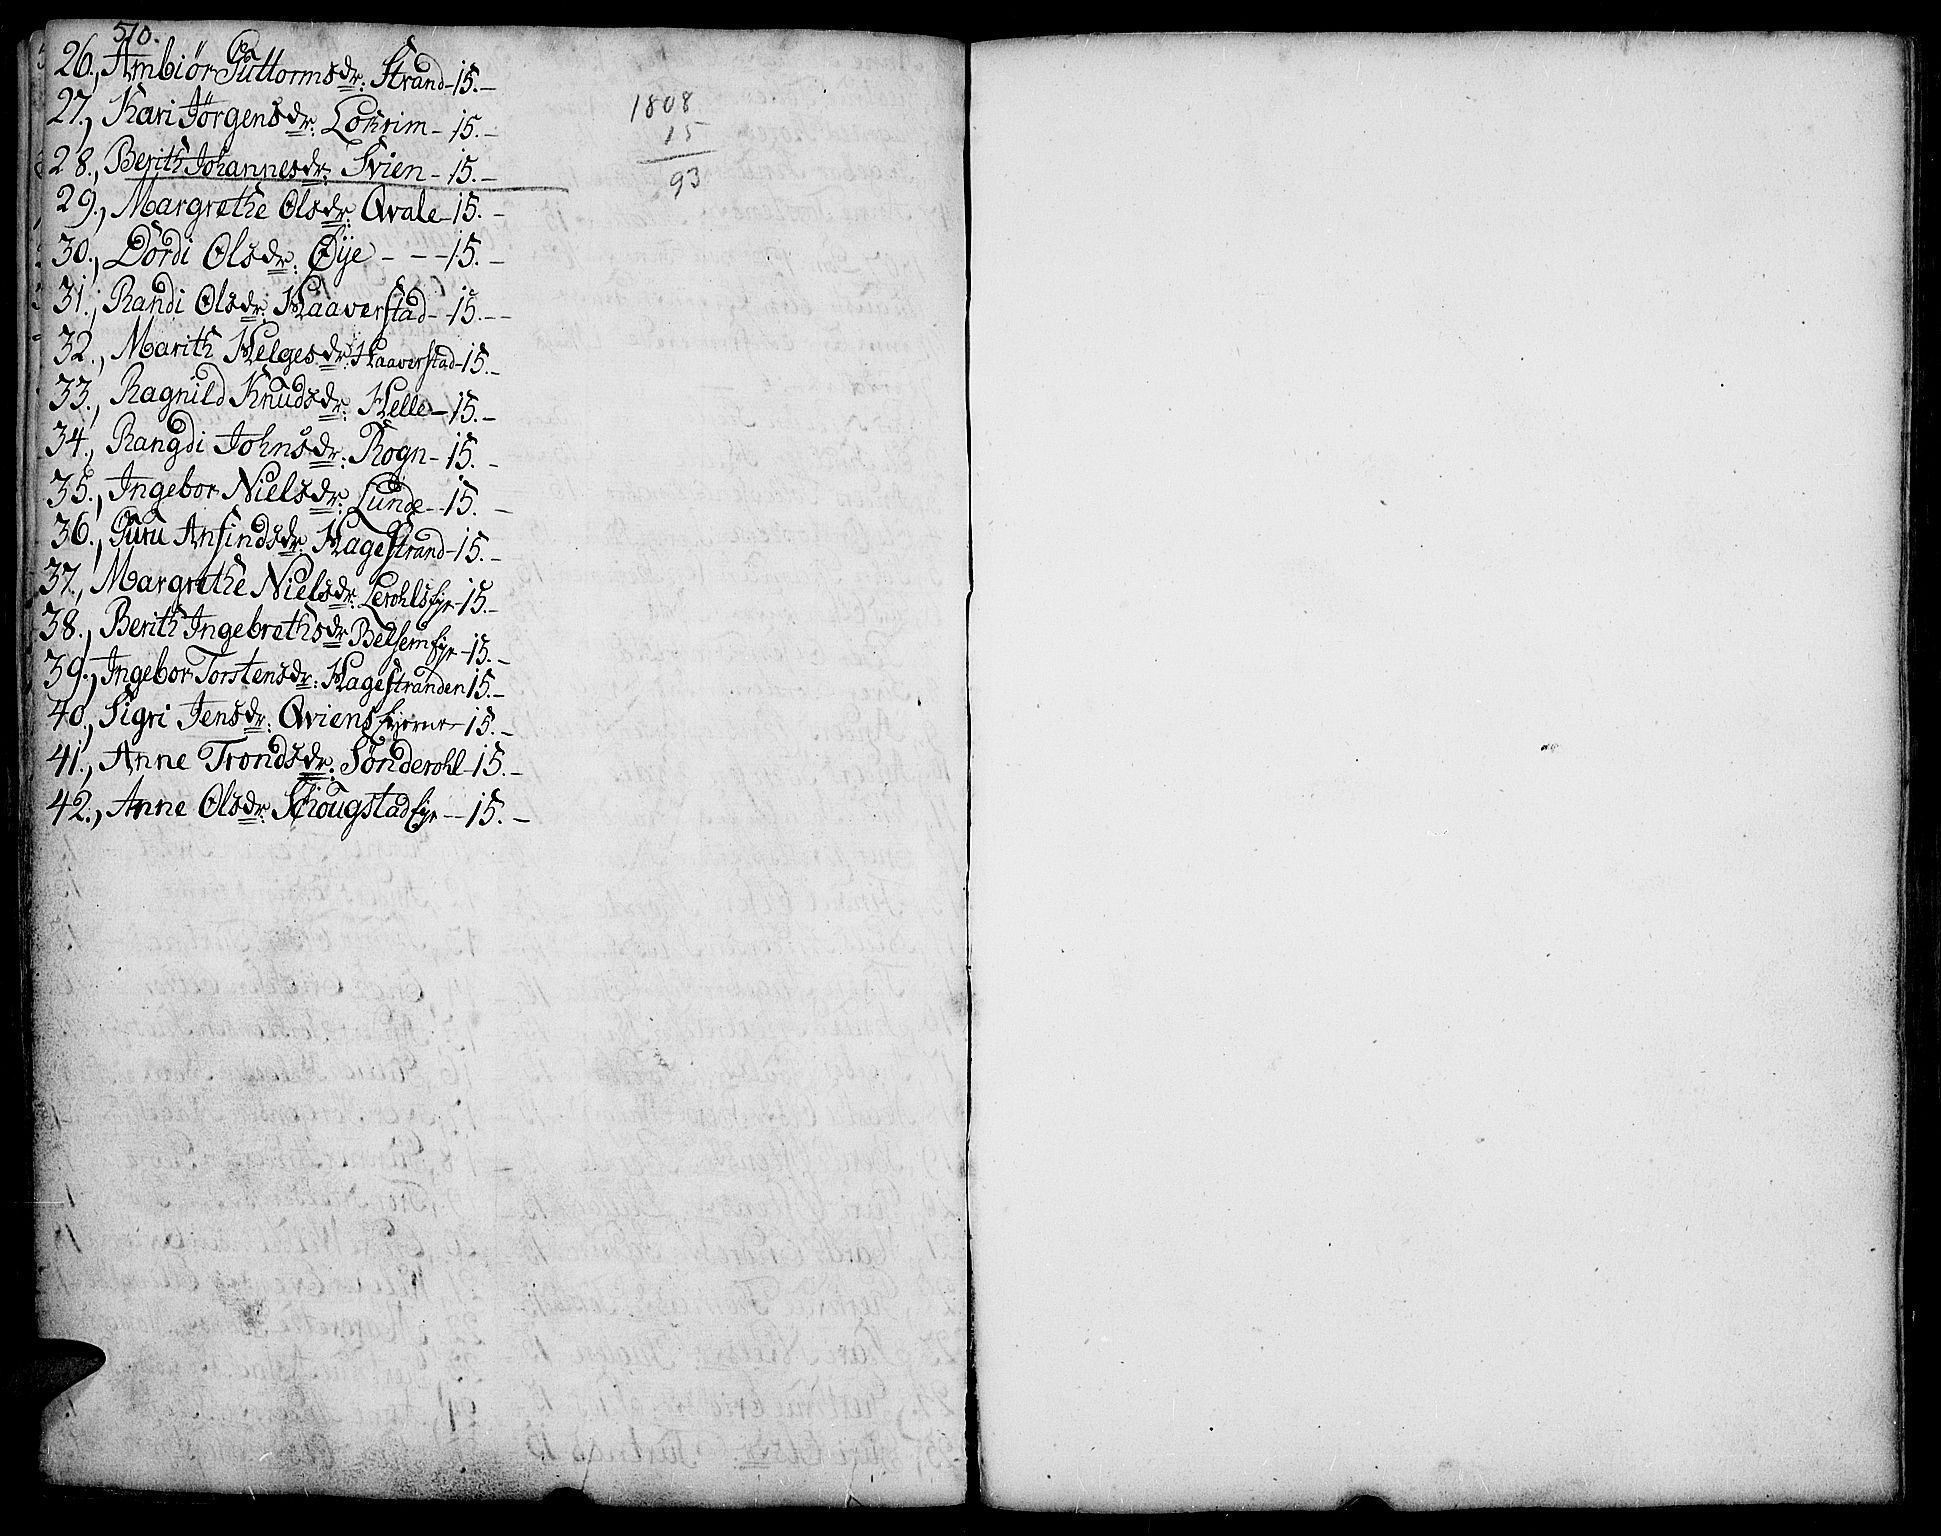 510.
26., Ambiör Guttormsdr: Strand - 15. -
27., Kari Jörgensdr: Lohrim - 15. -
28., Berith Johannesdr: Svien - 15. -
29., Margrethe Olsdr: Qvale - 15. -
30., Dördi Olsdr: Øÿe - - - 15. -
31., Randi Olsdr: Haaverstad - 15. - -
32., Marith Helgesdr: Haaverstad - 15. -
33., Ragnild Knudsdr: Helle - 15. -
34., Rangdi Johnsdr: Rogn - 15. -
35., Ingebor Nielsdr: Lunde - 15. -
36., Guru Anfindsdr: Hagestrand - 15. -
37., Margrethe Nielsdr: Lerohlsejr - 15. -
38., Berith Ingebrethsdr: Belsemejr - 15. -
39., Ingebor Torstensdr: Hagestranden 15. -
40., Sigri Jensdr: Qviens - 15. -
41., Anne Trondsdr: Sönderohl - 15. -
42., Anne Olsdr: Schougstadejr - - 15. -
1808
15
93